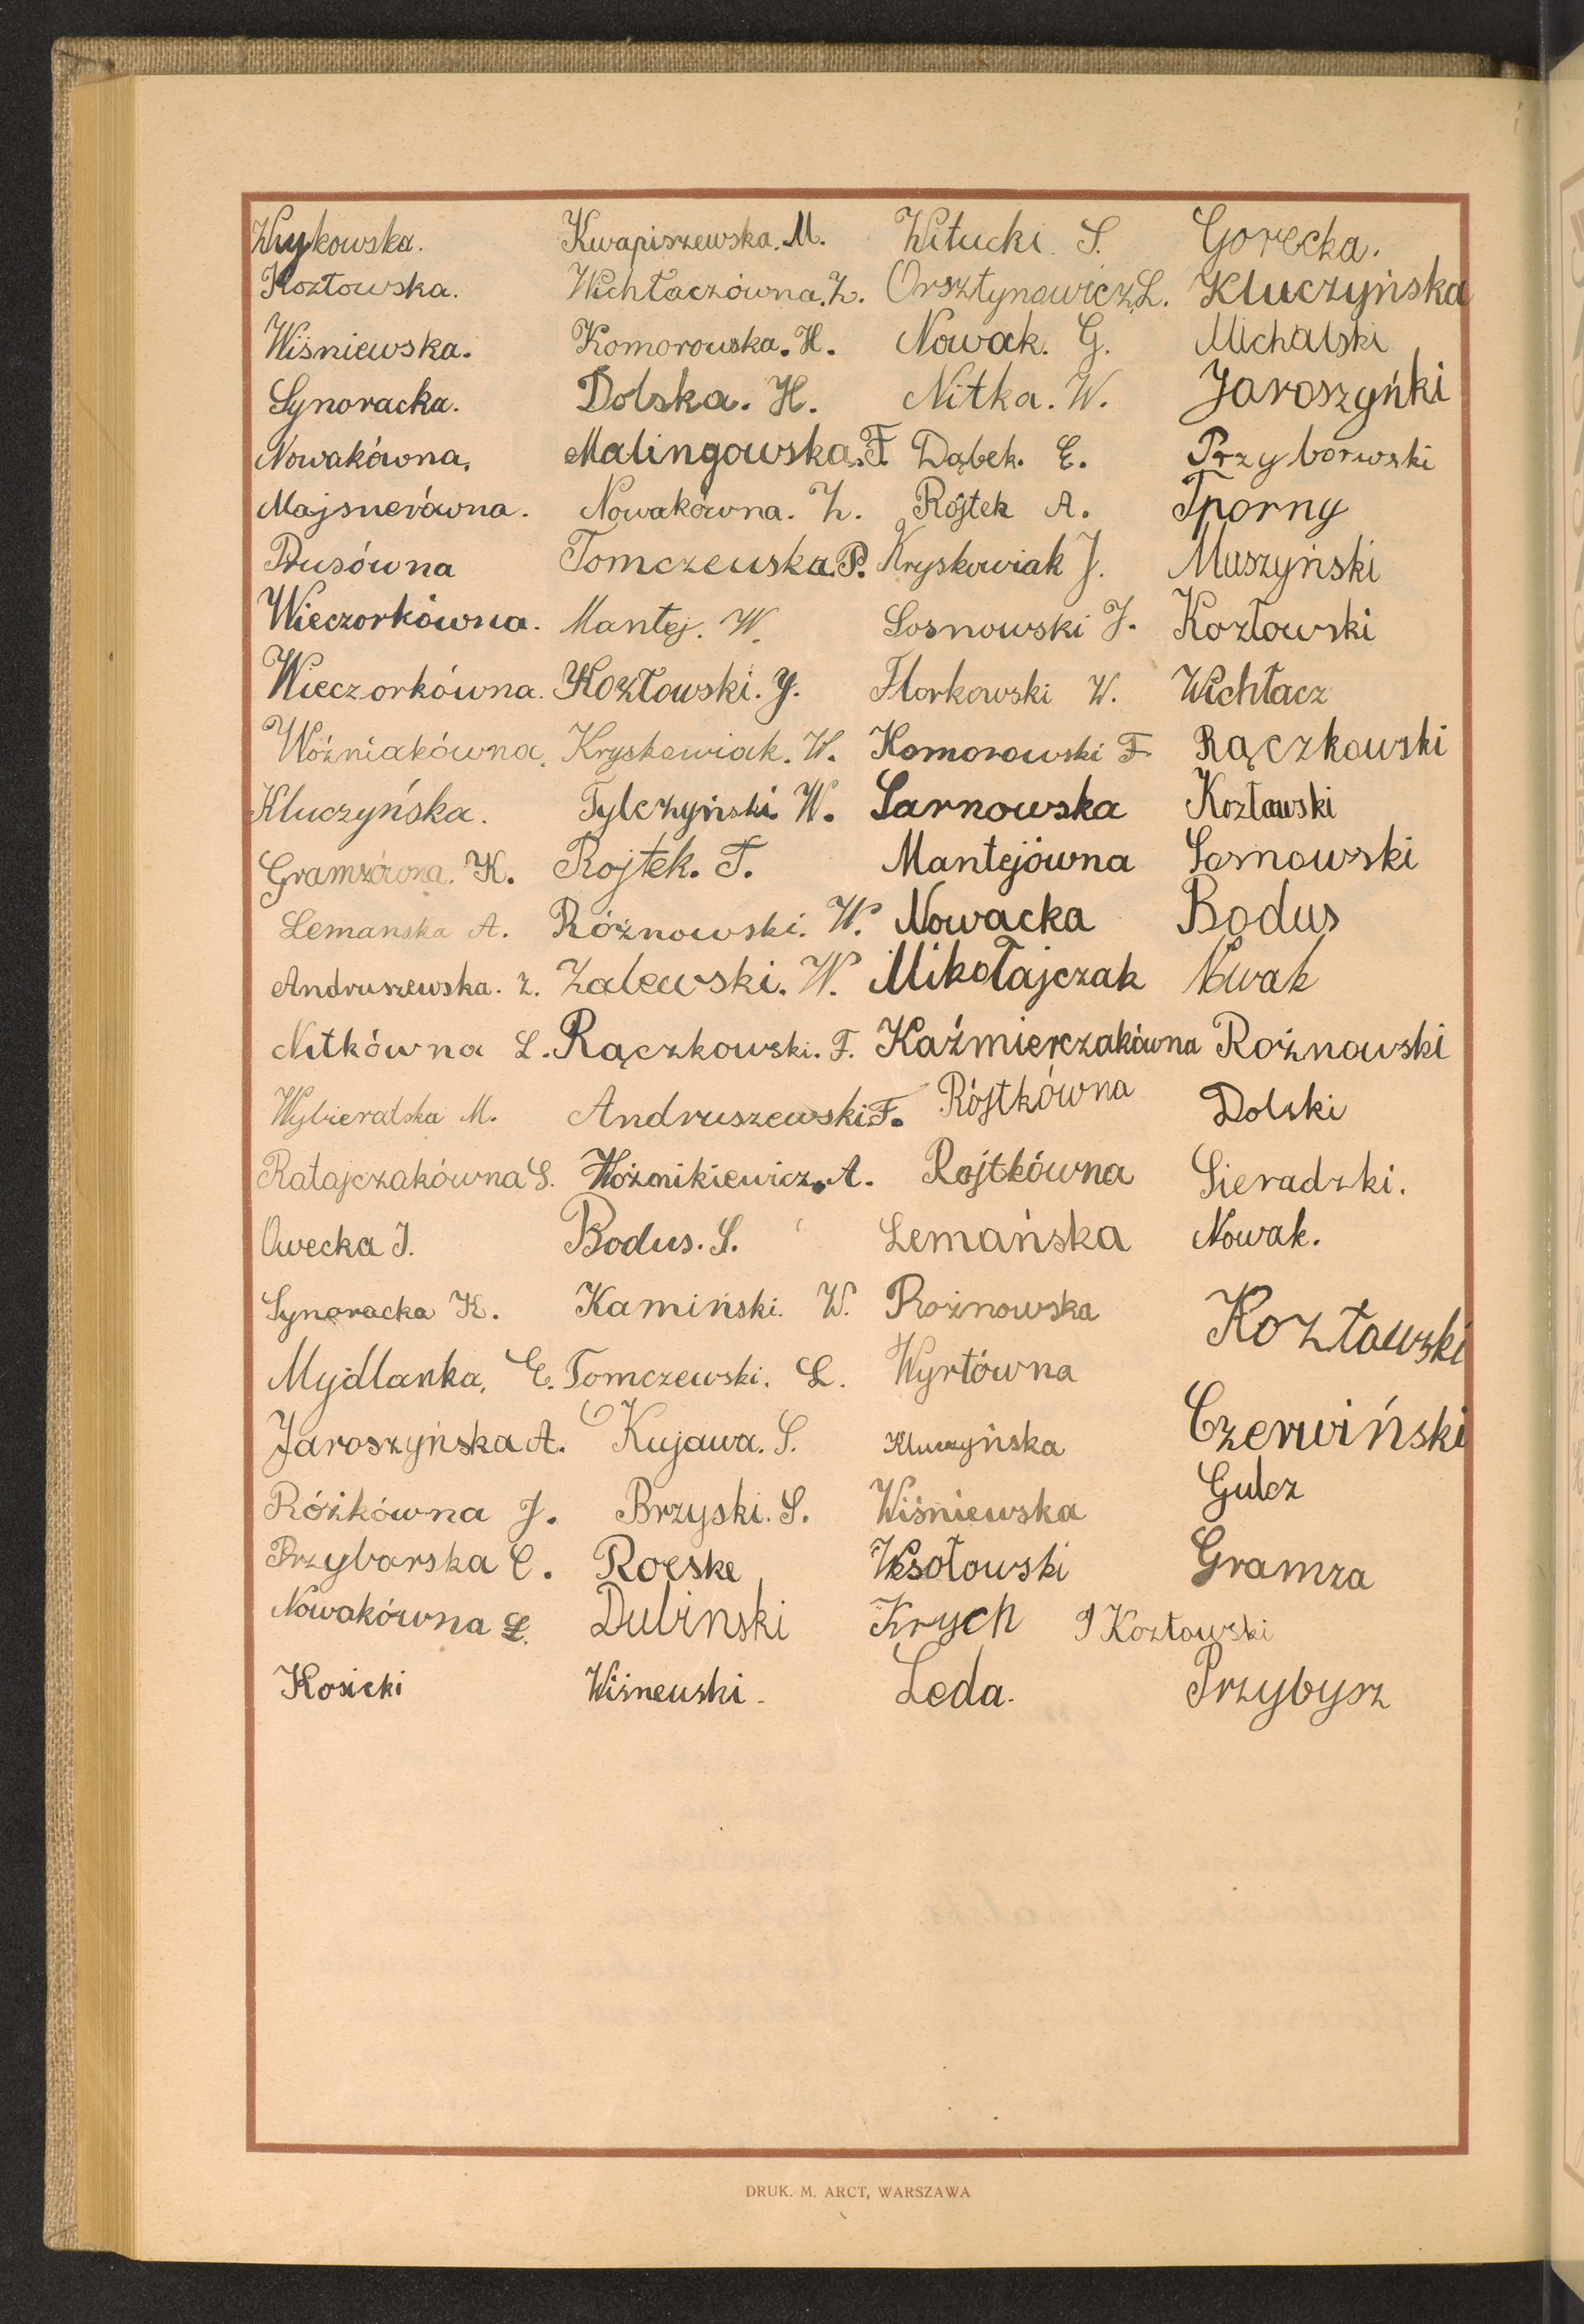 Wykowska. Kwapiszewska. M. Witucki. S. Gorecka.
Kozłowska. Wichłaczówna. Z. Orsztynowicz L. Kluczyńska
Wiśniewska. Komorowska. H. Nowak. G. Michalski
Synoracka. Dolska. H. Nitka. W. Jaroszyńki
Nowakówna. Malingowska. F. Dąbek. E. Przyborwski
Majsnerówna. Nowakówna. Z. Rójtek A. Tporny
Prusówna Tomczewska P. Kryskowiak J. Muszyński
Wieczorkówna. Mantej. W. Sosnowski J. Kozłowski
Wieczorkówna. Kozłowski. J. Florkowski W. Wichłacz
Woźniakówna. Kryskowiak. W. Komorowski F Rączkowski
Kluczyńska. Tylczyński W. Sarnowska Kozłowski
Gramzówna. K. Rojtek. T. Mantejówna Sosnowski
Lemanska A. Różnowski. W. Nowacka Bodus
Andruszewska. Z. Zalewski. W. Mikołajczak Nowak
Nitkówna L. Rączkowski. F. Kaźmierczakówna Rożnowski
Wybieralska M. Andruszewski F. Rójtkówna Dolski
Ratajczakówna S. Woźnikiewicz. A. Rojtkówna Sieradzki.
Owecka J. Bodus. S. Lemańska Nowak.
Synoracka K. Kamiński. W. Rożnowska Kozłowski
Mydlanka, E. Tomczewski. L. Wyrtówna
Jaroszyńska A. Kujawa. S. Kluczyńska Czerwiński
Różkówna J. Brzyski. S. Wiśniewska Gulcz
Przybarska C. Roeske Wesołowski Gramza
Nowakówna L. Dubinski Krych J Kozłowski
Kosicki Wiśnewski. Leda. Przybysz
DRUK. M. ARCT, WARSZAWA